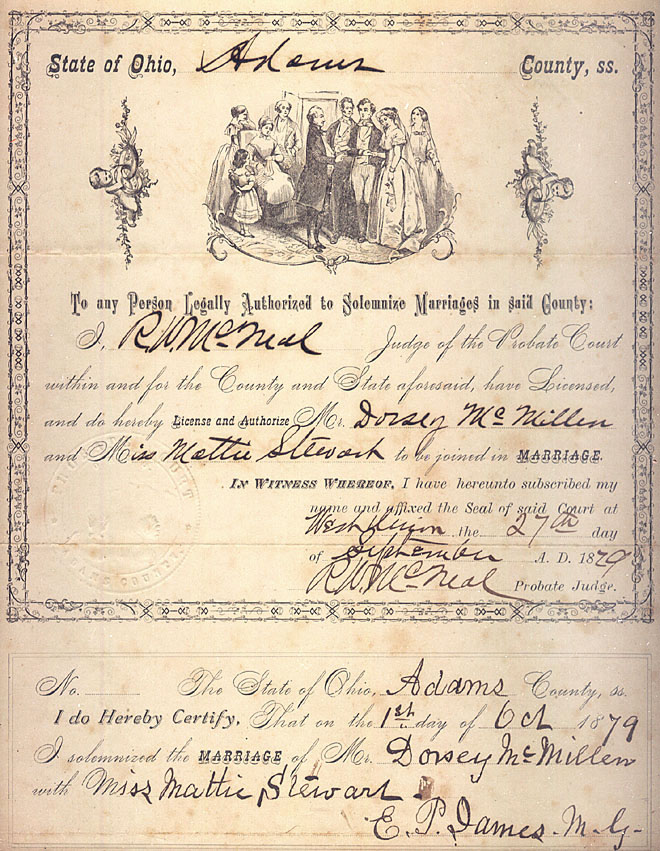 State of Ohio, Adams County, ss.
To any Person Legally Authorized to Solemnize Marriages in said County:
I, R.W. McNeal Judge of the Probate Court
within and for the County and State aforesaid, have Licensed,
and do hereby License and Authorize Mr. Dorsey McMillen
and Miss Mattie Stewart to be joined in MARRIAGE.
IN WITNESS WHEREOF, I have hereunto subscribed my
name and affixed the Seal of said Court at
West Union the 27th day
of September A. D. 1879
R.W. McNeal Probate Judge.
COURT
COUNTY
No. The State of Ohio, Adams County, ss.
I do Hereby Certify, That on the 1st day of Oct 1879
I solemnized the MARRIAGE of Mr. Dorsey McMillen
with Miss Mattie Stewart.
E. P. James. M. G.